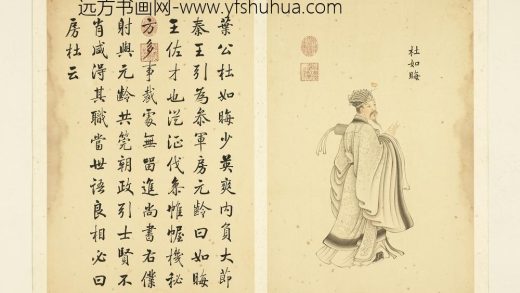 远方书画网-www.yfshuhua.com
杜如晦
葉公杜如晦少英爽内負大節
秦王引為叅軍房元齡曰如晦
王佐才也從征伐叅帷幄機秘
方多事裁處無留進尚書右僕
射與元齡共筦朝政引士賢不
肖咸得其職當世語良相必曰
房杜云